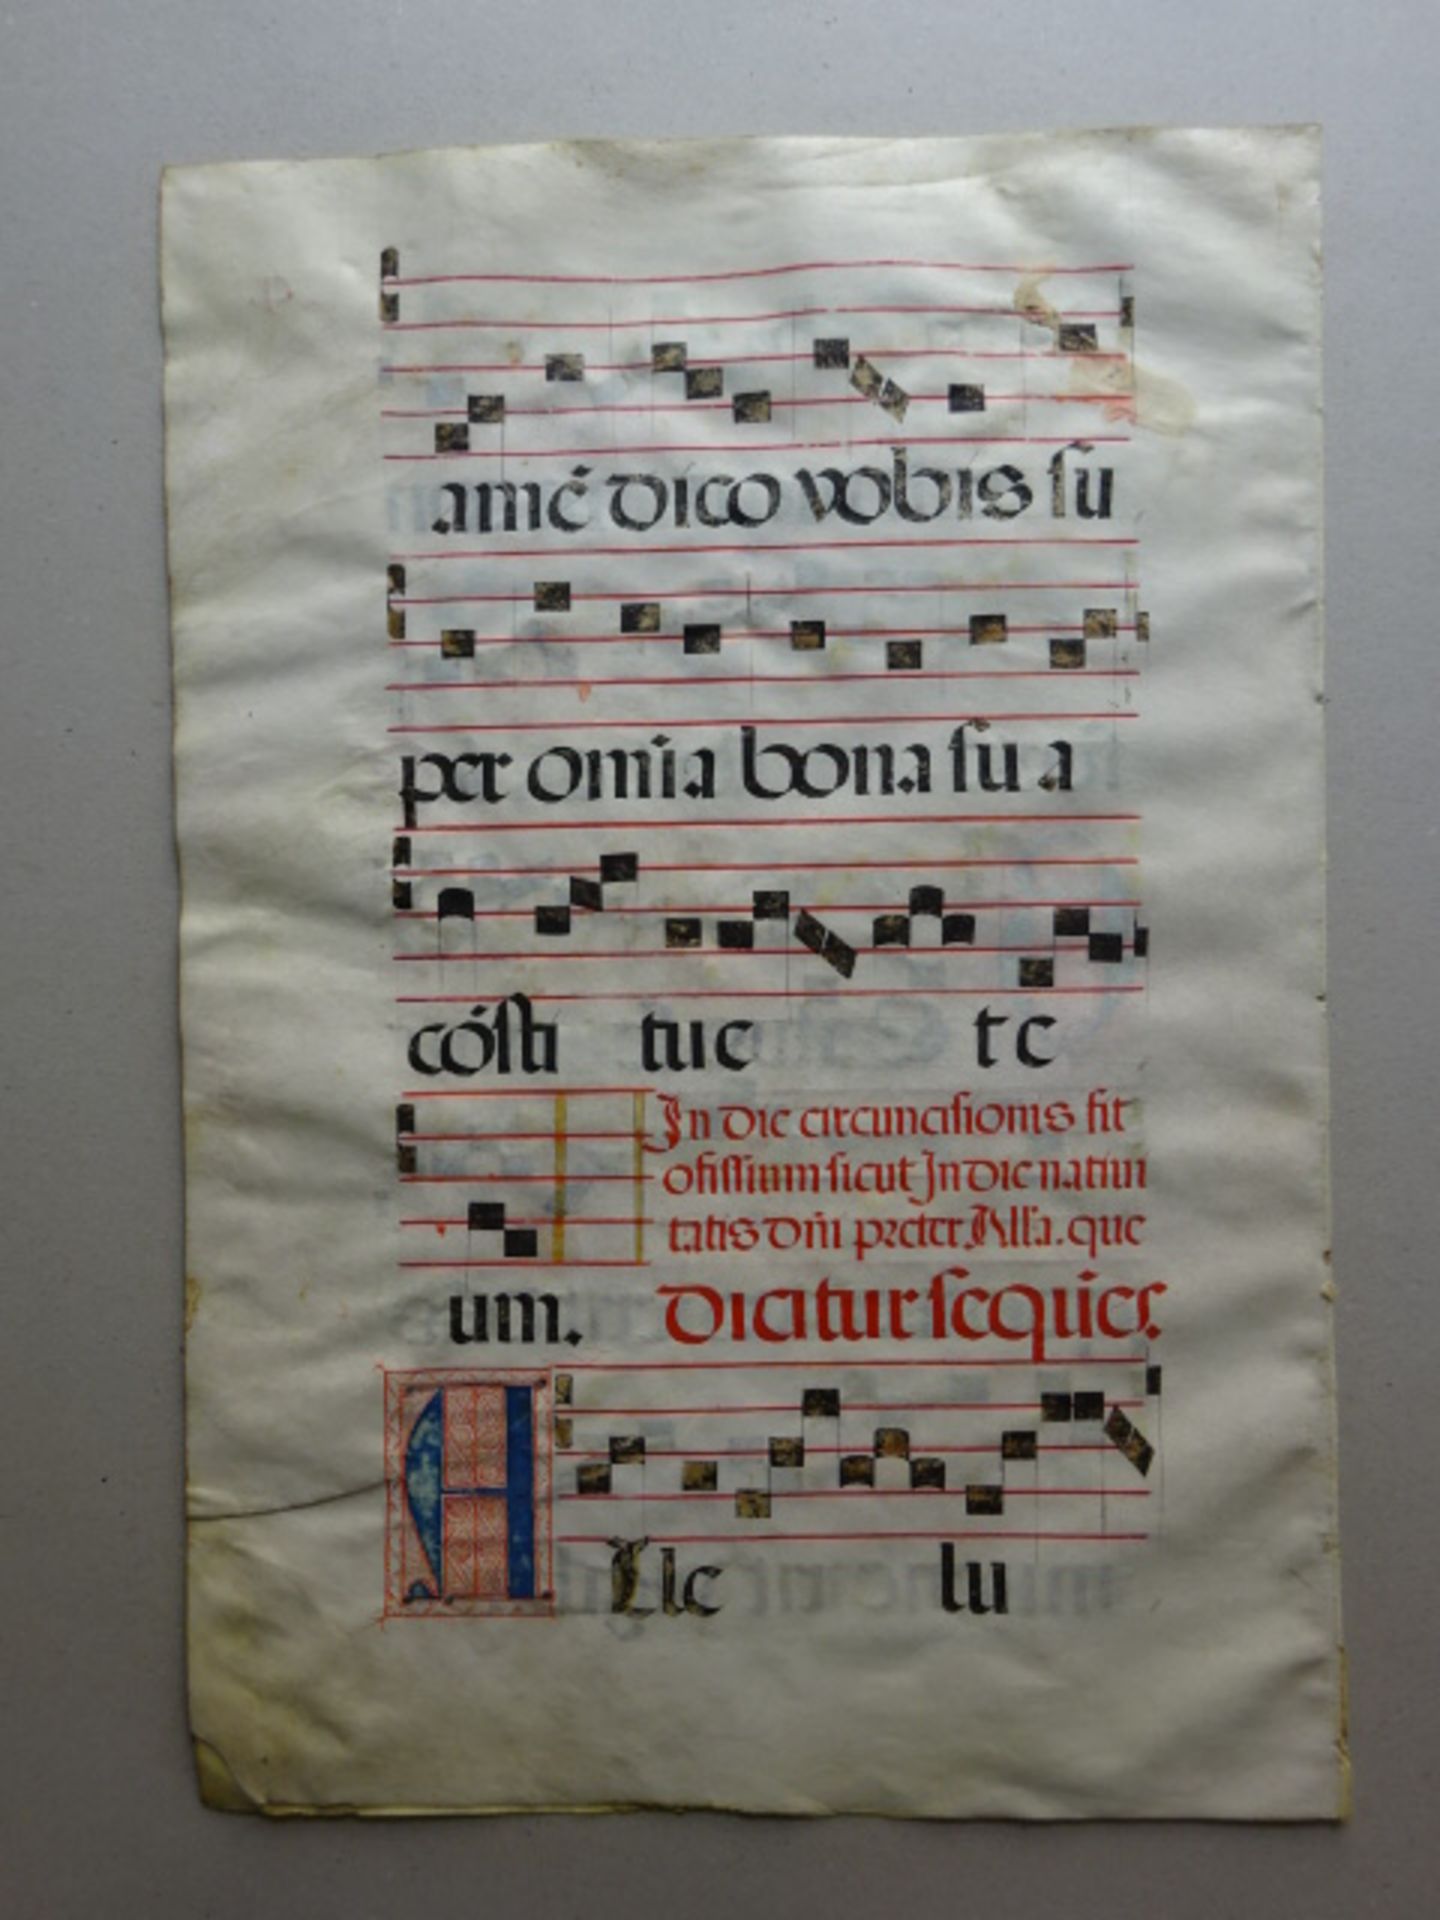 amē dico vobis su
per omīa bona su a
cōsti tue te
In die circuncisionis fit
ofissium sicut In die natiui
tatis dn̄i preter Alla. que
um. dicitur sequēs.
Alle lu